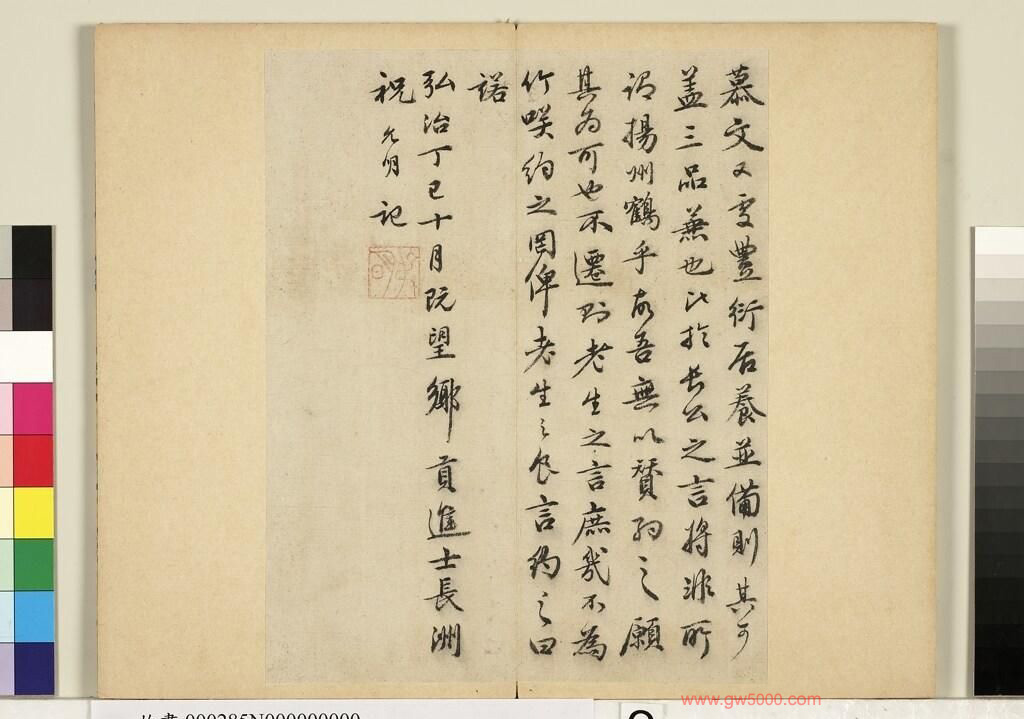 慕文又受豐衍居養並備則其可
盖三品兼也比於長公之言將非所
謂揚州鶴乎故吾無以贊約之願
其為可也不遷則老生之言庶幾不為
竹咲約之罔俾老生之食言約之曰
諾
弘治丁巳十月既望鄉貢進士長洲
祝允明記
www.gw5000.com